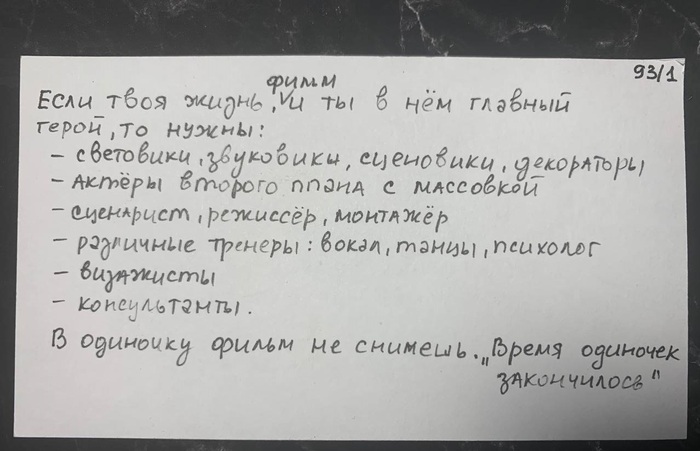 93/1
Если твоя жизнь, фимм и ты в нём главный
герой, то нужны:
- световики, звуковики, сценовики, декораторы
- Актёры второго плана с массовкой
- сценарист, режиссёр, монтажёр
- различные тренеры: вокал, танцы, психолог
- визажисты
- консультанты.
В одиночку фильм не снимешь. „Время одиночек
закончилось"